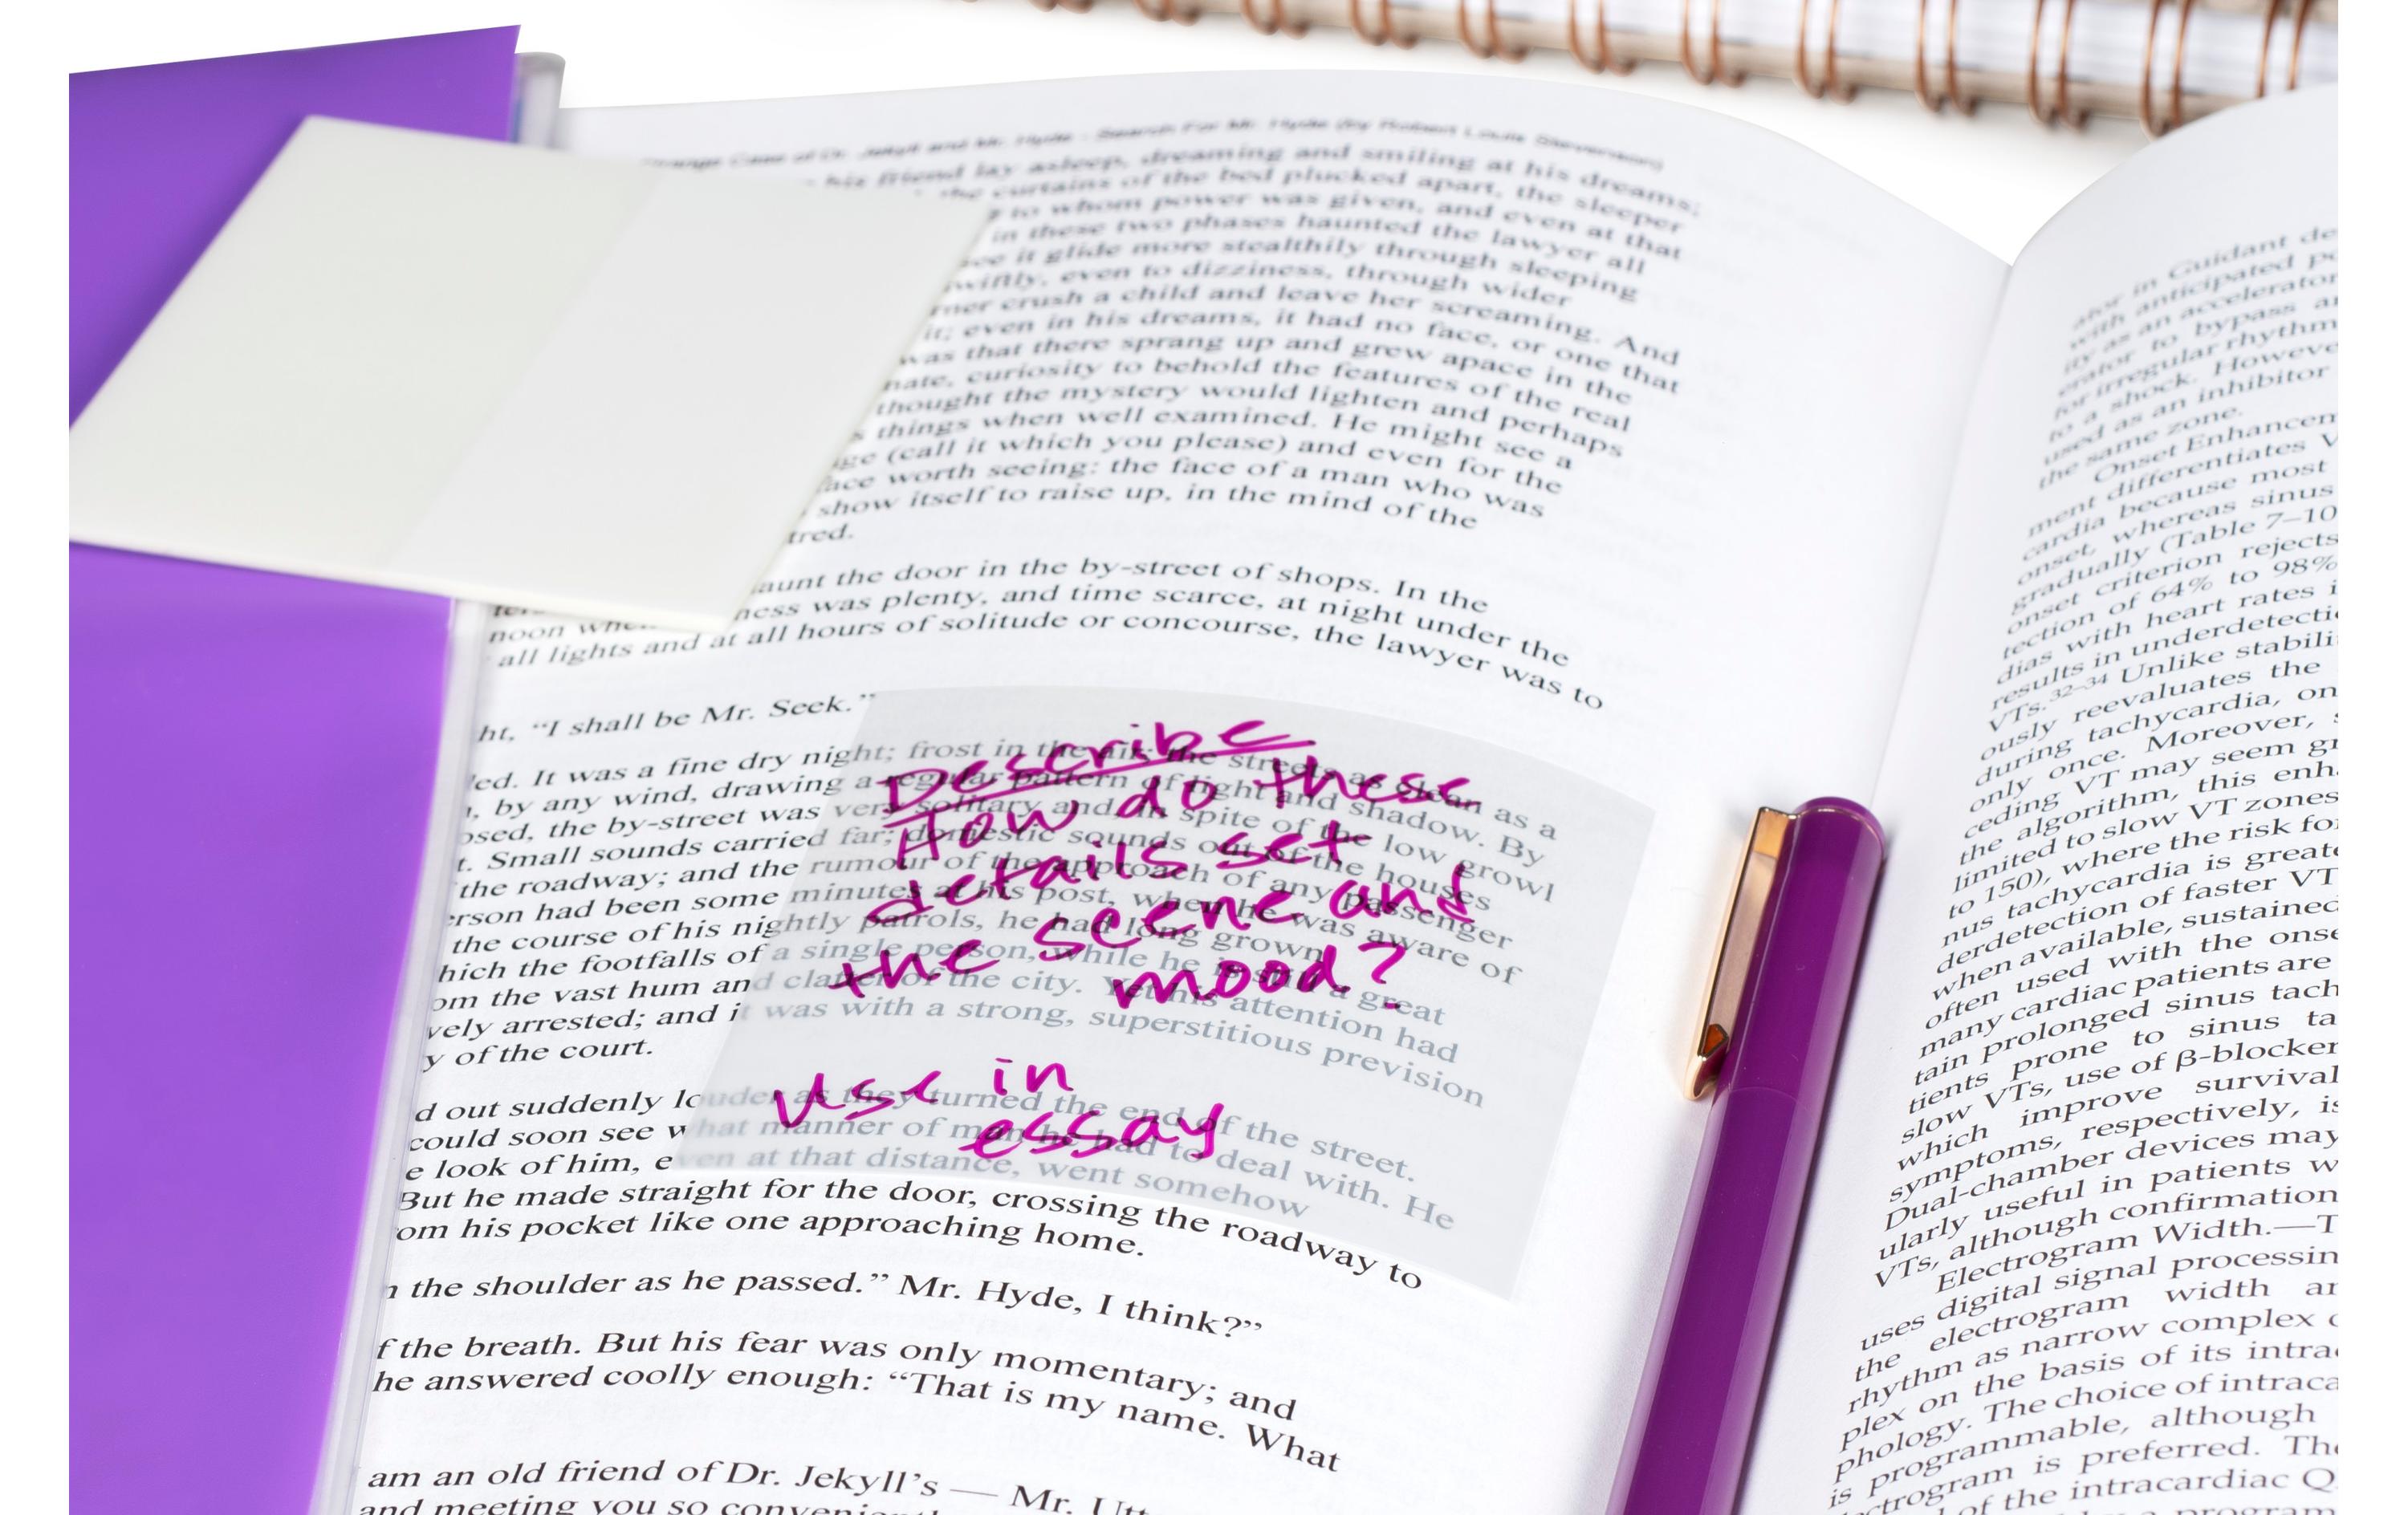 Strange Case of Dr. Jekyll and Mr. Hyde - Search For Mr. Hyde (by Robert Louis Stevenson)
his friend lay asleep, dreaming and smiling at his dreams;
the curtains of the bed plucked apart, the sleeper
to whom power was given, and even at that
in these two phases haunted the lawyer all
it glide more stealthily through sleeping
swiftly, even to dizziness, through wider
crush a child and leave her screaming. And
it; even in his dreams, it had no face, or one that
was that there sprang up and grew apace in the
nate, curiosity to behold the features of the real
thought the mystery would lighten and perhaps
things when well examined. He might see a
ge (call it which you please) and even for the
face worth seeing: the face of a man who was
show itself to raise up, in the mind of the
tred.
aunt the door in the by-street of shops. In the
noon when ness was plenty, and time scarce, at night under the
all lights and at all hours of solitude or concourse, the lawyer was to
ht, “I shall be Mr. Seek.”
ed. It was a fine dry night; frost in the air; the streets as clean as a
, by any wind, drawing a regular pattern of light and shadow. By
osed, the by-street was very solitary and, in spite of the low growl
t. Small sounds carried far; domestic sounds out of the houses
the roadway; and the rumour of the approach of any passenger
erson had been some minutes at his post, when he was aware of
the course of his nightly patrols, he had long grown
hich the footfalls of a single person, while he is still a great
om the vast hum and clatter of the city. Yet his attention had
vely arrested; and it was with a strong, superstitious prevision
y of the court.
d out suddenly louder as they turned the end of the street.
could soon see what manner of man he had to deal with. He
e look of him, even at that distance, went somehow
But he made straight for the door, crossing the roadway to
om his pocket like one approaching home.
n the shoulder as he passed.” Mr. Hyde, I think?”
f the breath. But his fear was only momentary; and
he answered coolly enough: “That is my name. What
am an old friend of Dr. Jekyll’s — Mr. Utt
and meeting you so convenient
Describe
How do these
details set
the scene and
mood?
use in
essay
ator in Guidant de
with anticipated
ity as an accelerator
erator to bypass
for irregular rhythm
to a shock. Howeve
used as an inhibitor
the same zone.
Onset Enhancem
ment differentiates V
cardia because most
onset, whereas sinus
gradually (Table 7–10
onset criterion rejects
tection of 64% to 98%
dias with heart rates i
results in underdetecti
VTs.32–34 Unlike stabili
ously reevaluates the
during tachycardia, on
only once. Moreover, s
ceding VT may seem gr
the algorithm, this enh
limited to slow VT zones
to 150), where the risk fo
nus tachycardia is greate
derdetection of faster VT
when available, sustained
often used with the onse
many cardiac patients are
tain prolonged sinus tach
tients prone to sinus ta
slow VTs, use of β-blocker
which improve survival
symptoms, respectively, is
Dual-chamber devices may
ularly useful in patients w
VTs, although confirmation
Electrogram Width.—T
uses digital signal processin
the electrogram width ar
rhythm as narrow complex
plex on the basis of its intra
phology. The choice of intraca
is programmable, although
ctrogram is preferred. The
of the intracardiac Q
program